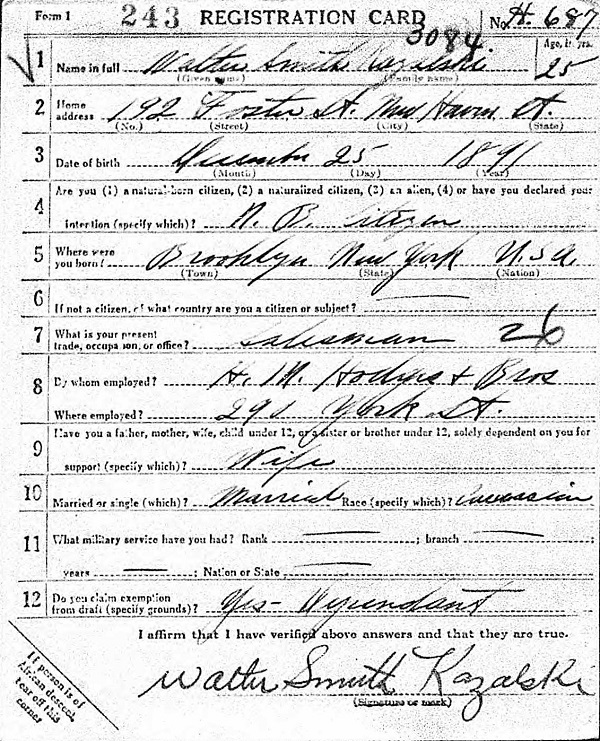 Form 1 243 REGISTRATION CARD No. H. 687
3084
1 Name in full Walter Smith Kazalski Age, in yrs. 25
(Given name) (Family name)
2 Home address 192 Foster St. New Haven Ct.
(No.) (Street) (City) (State)
3 Date of birth December 25 1891
(Month) (Day) (Year)
4 Are you (1) a natural-born citizen, (2) a naturalized citizen, (3) an alien, (4) or have you declared your
intention (specify which)? N. B. Citizen
5 Where were you born? Brooklyn New York U.S.A.
(Town) (State) (Nation)
6 If not a citizen, of what country are you a citizen or subject?
7 What is your present trade, occupation, or office? Salesman 26
8 By whom employed? H. M. Hodges + Bros
Where employed? York St.
9 Have you a father, mother, wife, child under 12, or a sister or brother under 12, solely dependent on you for
support (specify which)? Wife
10 Married or single (which)? Married Race (specify which)? Caucasian
11 What military service have you had? Rank ; branch
years ; Nation or State
12 Do you claim exemption from draft (specify grounds)? Yes - Dependant
I affirm that I have verified above answers and that they are true.
Walter Smith Kazalski
(Signature or mark)
If person is of
African descent,
tear off this
corner